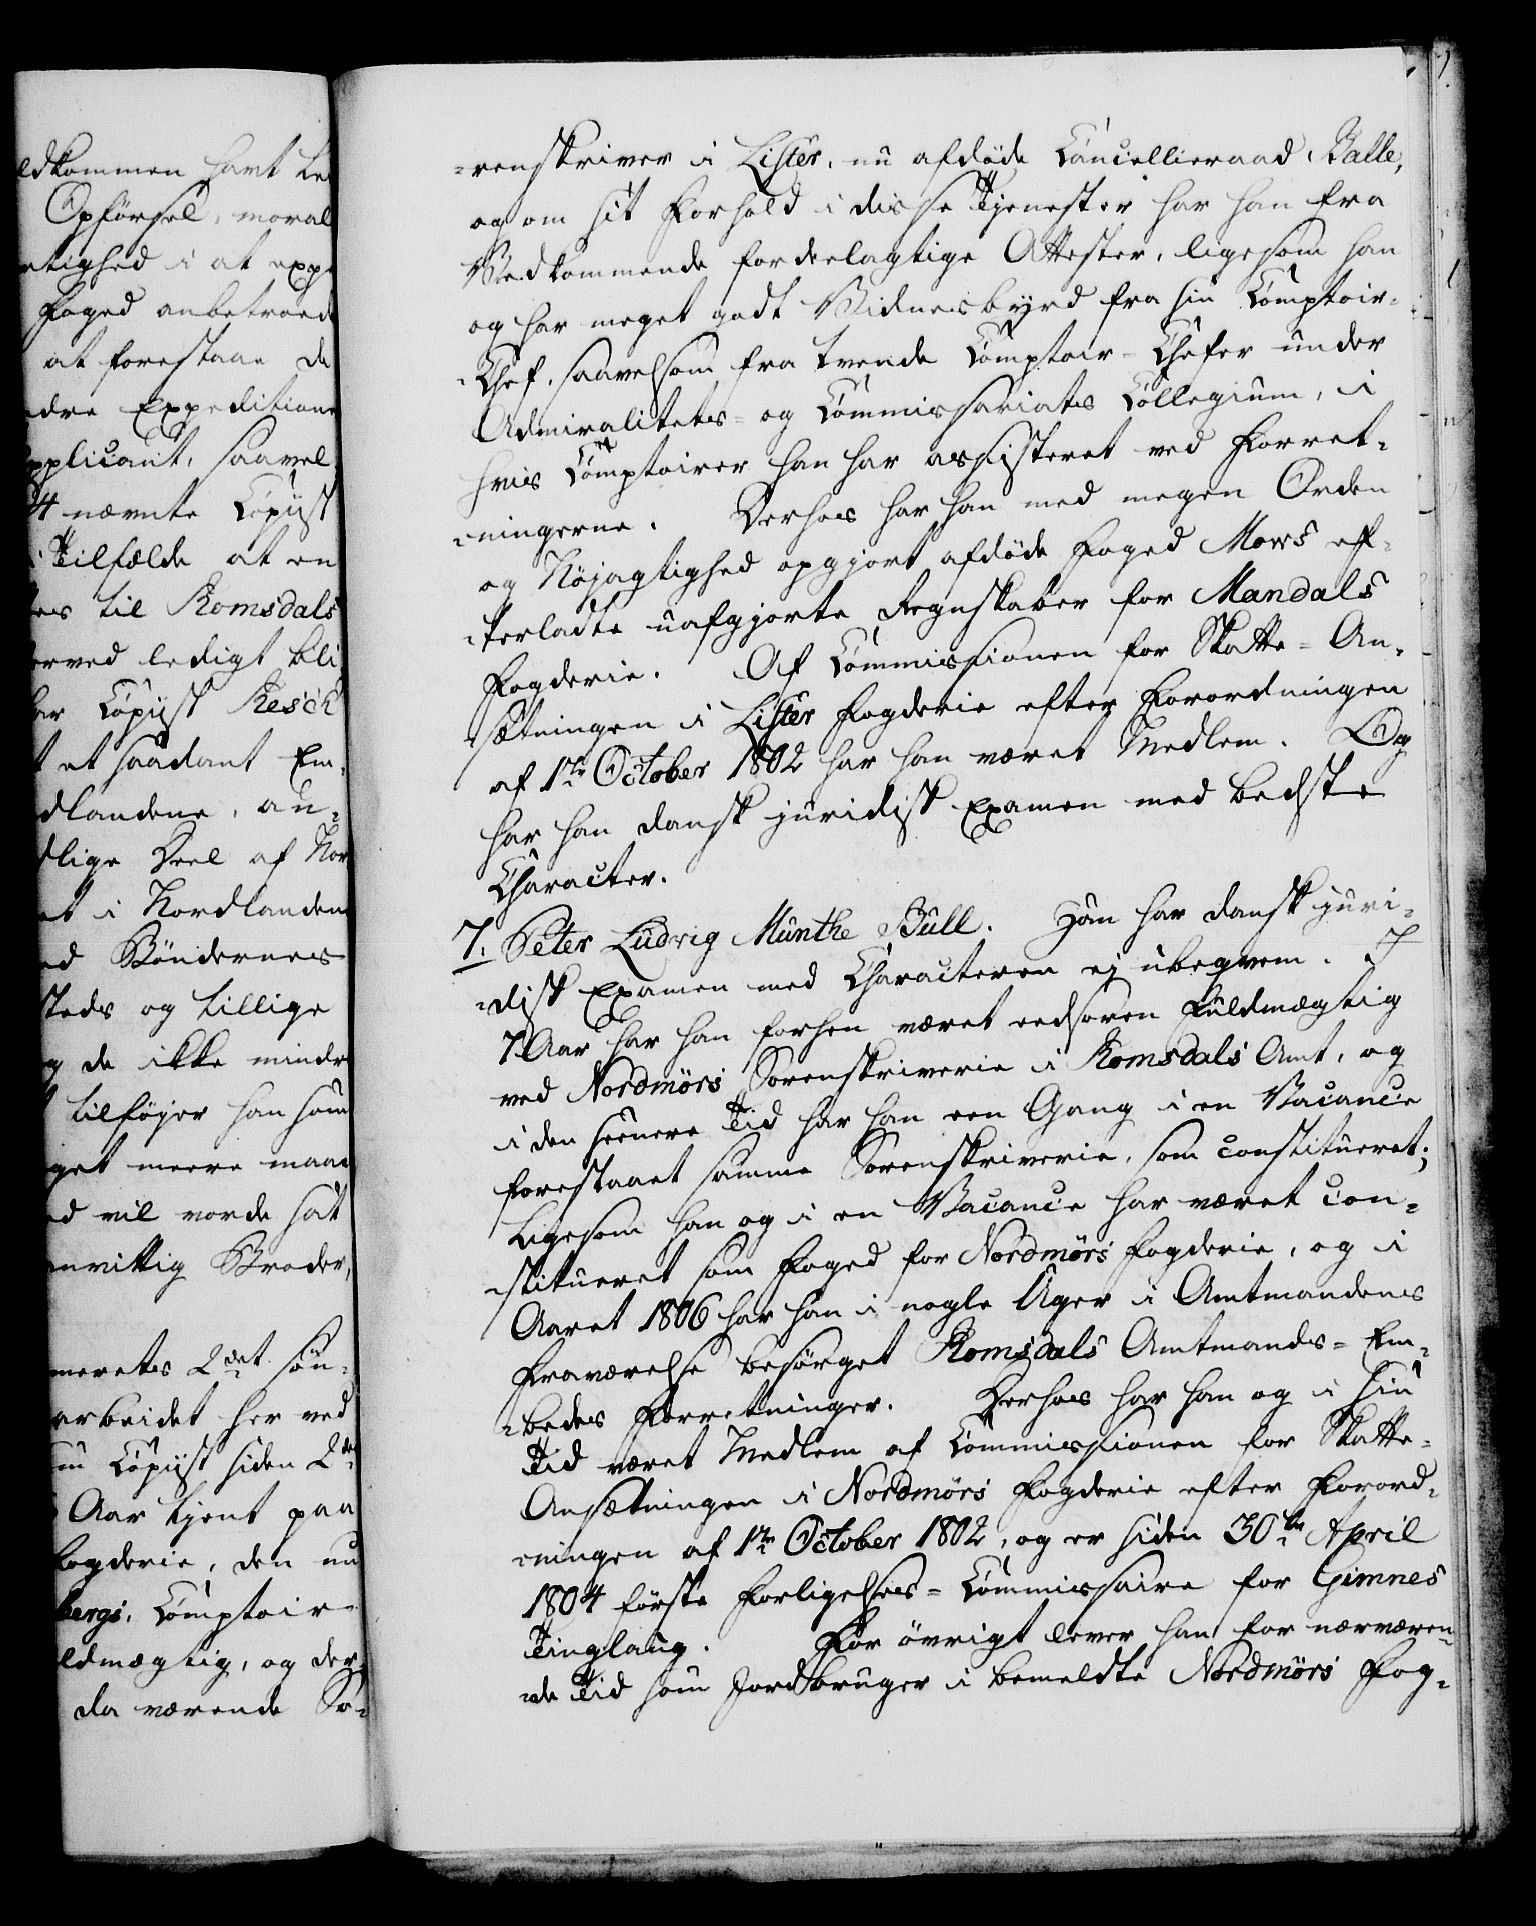 ldkommen havt Le
Opförsel, moral
gtighed i at exp
Foged anbetroed
at forestaae de
dre Expeditione
pplicant, saavel
4 nævnte Copiist
i Tilfælde at en
es til Romsdals
erved ledigt bli
ar Copiist Resch
t et saadant Em-
dlandene, an-
dlige Deel af Nor
et i Nordlanden
ed Böndernes
steds og tillige
g de ikke mindr
tilföjer han som
get meere maae
ed vil vorde sat
nvittig Broder,
merets 2det sön-
arbeidet her ved
nu Copiist siden 2de
Aar tjent paa
Fogderie, den nu
bergs, Comptoir
ldmægtig, og der-
da værende So-
-renskriver i Lister, nu afdöde Cancellieraad Balle,
og om sit Forhold i disse Tjenester har han fra
Vedkommende fordeelagtige Attester, ligesom han
og har meget godt Vidnesbyrd fra sin Comptoir-
-Chef, saavelsom fra tvende Comptoir-Chefer under
Admiralitets- og Commissariats Collegium, i
hvis Comptoirer han har assisteret ved Forret-
-ningerne. Derhos har han med megen Orden
og Nöjagtighed opgjort afdöde Foged Mows ef-
-terladte uafgjorte Regnskaber for Mandals
Fogderie. Af Commissionen for Skatte-An-
-sætningen i Lister Fogderie efter Forordningen
af 1te October 1802 har han været Medlem. Og
har han dansk juridisk Examen med bedste
Character.
7. Peter Ludvig Munthe Bull. Han har dansk juri-
-disk Examen med Characteren ej ubeqvem. I
7 Aar har han forhen været eedsoren Fuldmægtig
ved Nordmörs Sorenskriverie i Romsdals Amt, og
i den seenere Tid har han een Gang i en Vacance
forestaaet samme Sorenskriverie, som constitueret;
Ligesom han og i en Vacance har været con-
-stitueret som Foged for Nordmörs Fogderie, og i
Aaret 1806 har han i nogle Uger i Amtmandens
Fraværelse besörget Romsdals Amtmands-Em-
-bedes Forretninger. Derhos har han og i sin
Tid været Medlem af Commissionen for Skatte-
Ansætningen i Nordmörs Fogderie efter Forord-
-ningen af 1te October 1802, og er siden 30te April
1804 förste Forligelses-Commissaire for Gimnes
Tinglaug. For övrigt lever han for nærværen-
-de Tid som Jordbruger i bemeldte Nordmörs Fog-